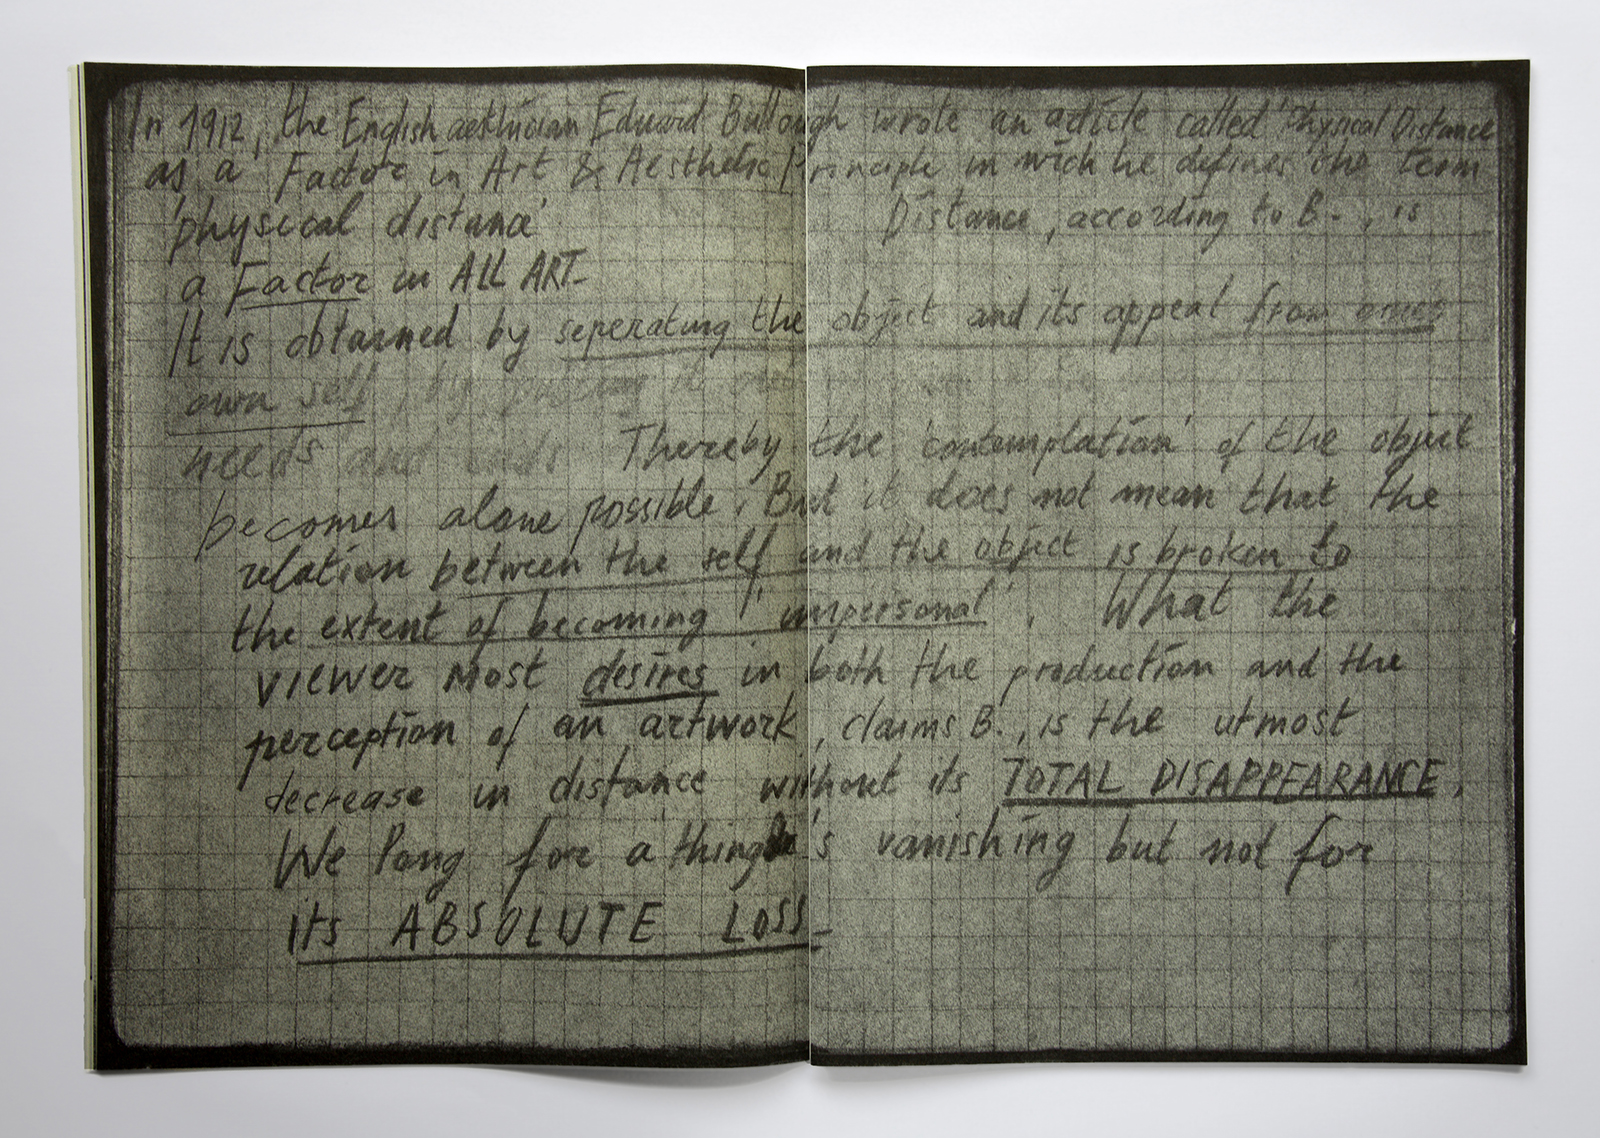 In 1912, the English aesthician Edward Bullough wrote an article called 'Physical Distance
as a Factor in Art & Aesthetic Principle in wich he defines the term
'physical distance' Distance, according to B., is
a Factor in ALL ART_
It is obtained by seperating the object and its appeal from ones
own self, by putting it
needs and ends Thereby the 'contemplation' of the object
becomes alone possible. But it does not mean that the
relation between the self and the object is broken to
the extent of becoming 'impersonal'. What the
viewer most desires in both the production and the
perception of an artwork, claims B., is the utmost
decrease in distance without its TOTAL DISAPPEARANCE.
We long for a thing's vanishing but not for
its ABSOLUTE LOSS_